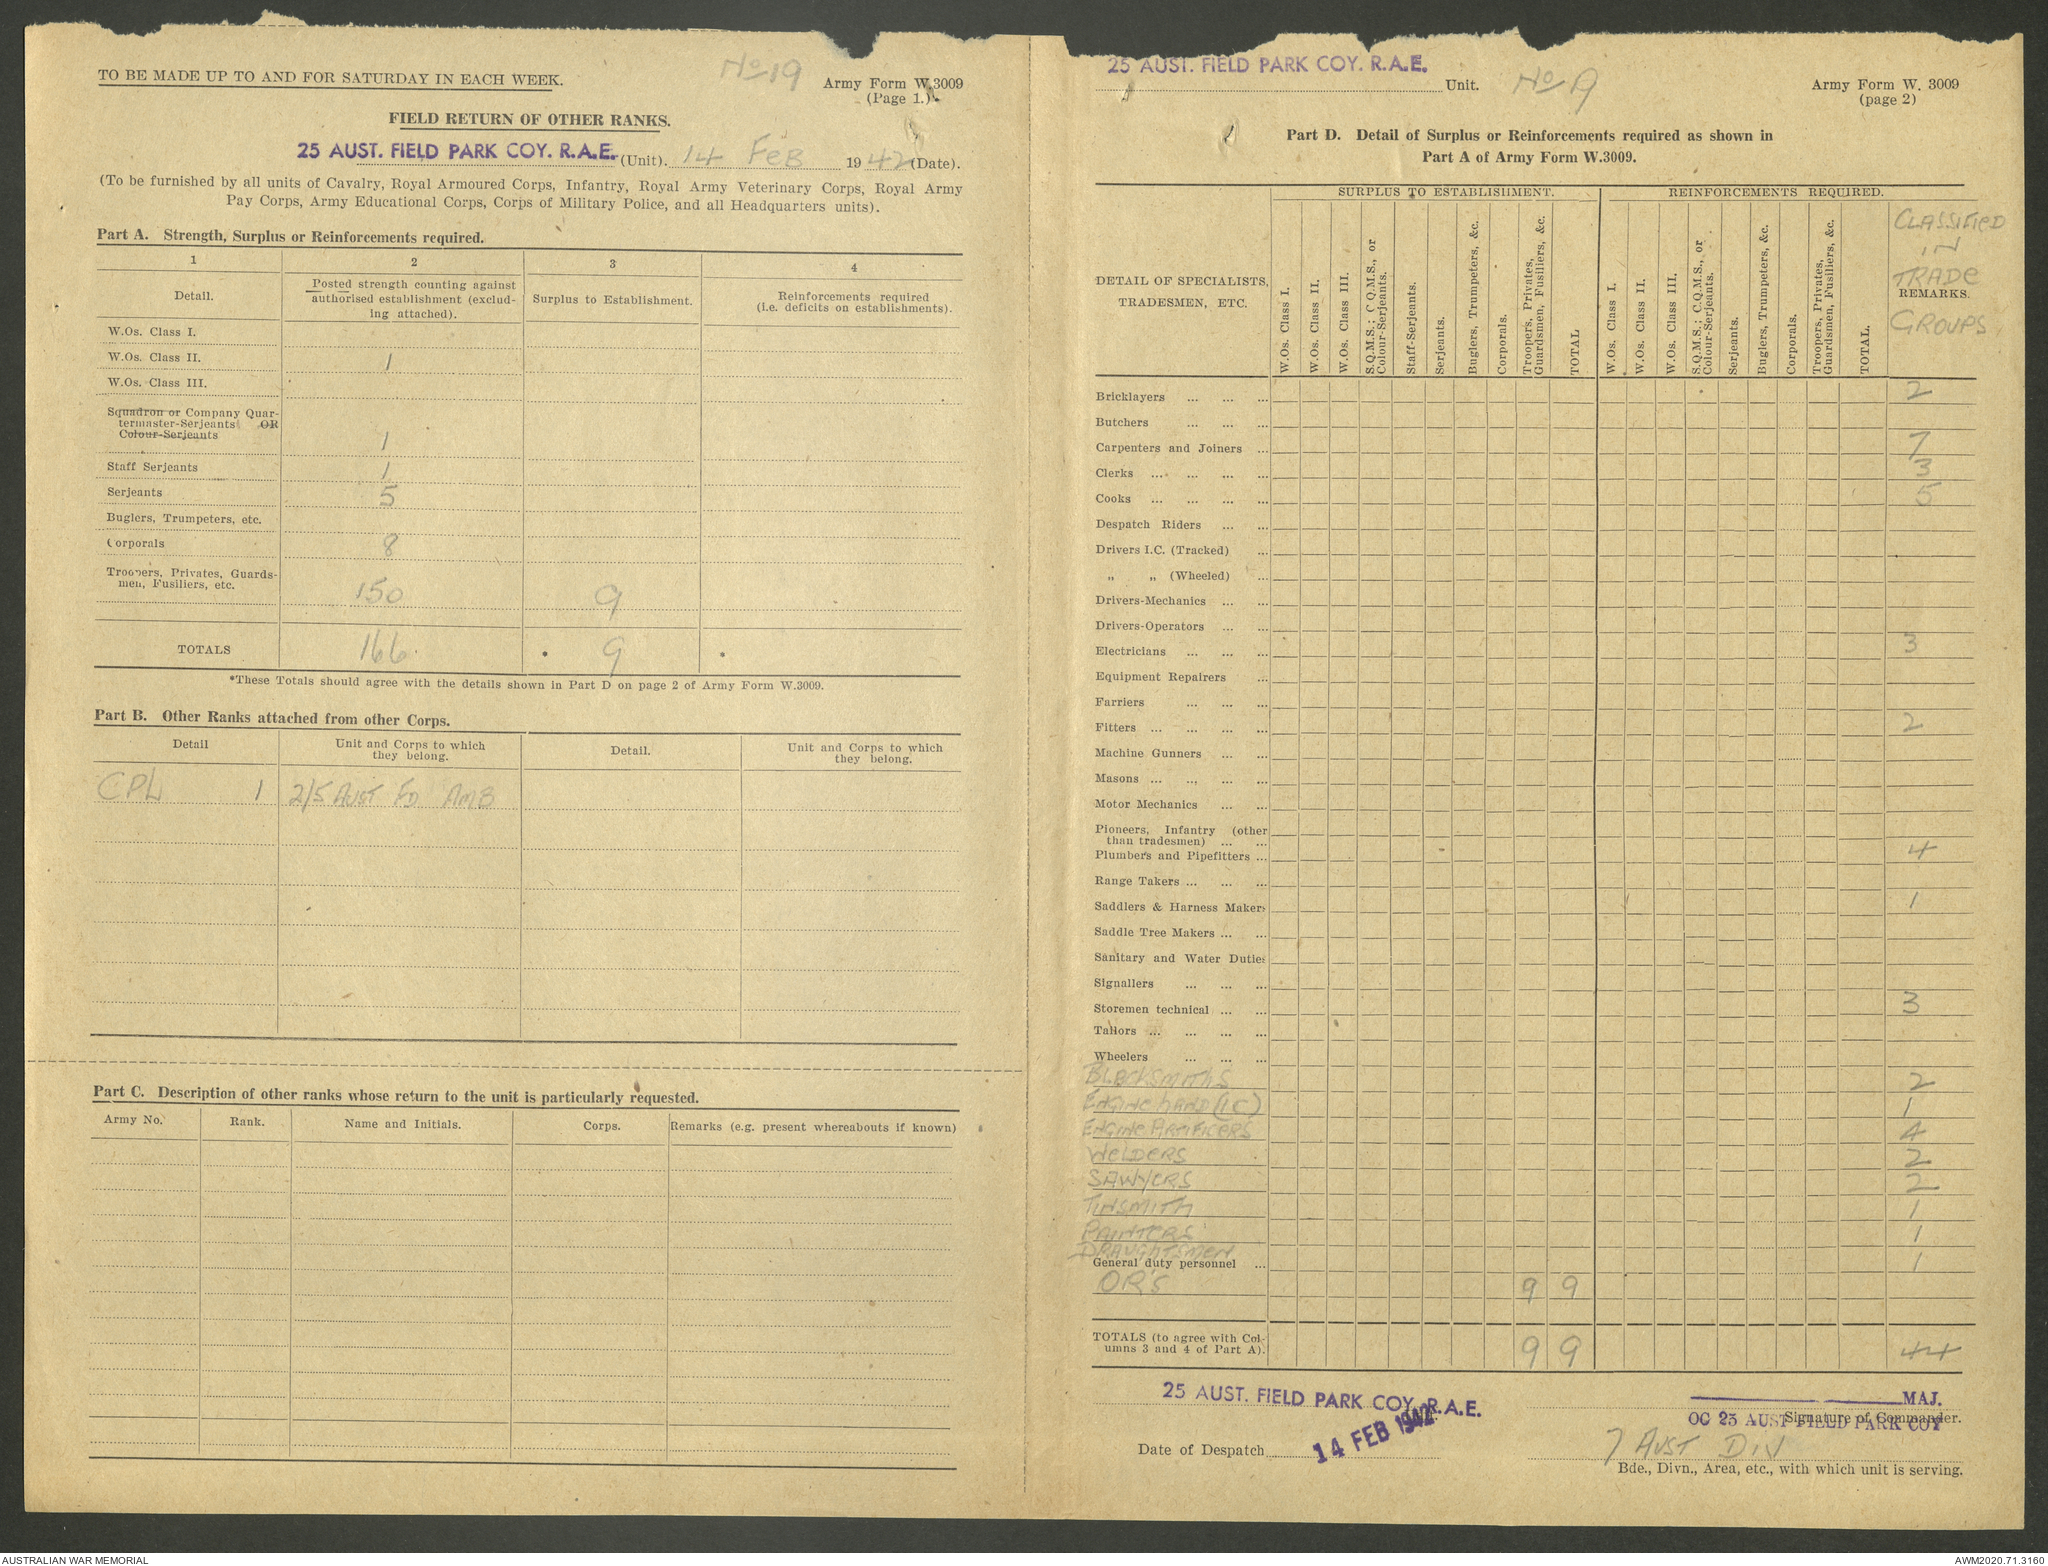 TO BE MADE UP TO AND FOR SATURDAY IN EACH WEEK.
No 19
Army Form W.3009
(Page 1.)
FIELD RETURN OF OTHER RANKS.
25 AUST. FIELD PARK COY. R.A.E. (Unit). 14 FEB 1942 (Date).
(To be furnished by all units of Cavalry, Royal Armoured Corps, Infantry, Royal Army Veterinary Corps, Royal Army
Pay Corps, Army Educational Corps, Corps of Military Police, and all Headquarters units).
Part A. Strength, Surplus or Reinforcements required.
1 2 3 4
Detail.
Posted strength counting against
authorised establishment (exclud-
ing attached).
Surplus to Establishment.
Reinforcements required
(i.e. deficits on establishments).
W.Os. Class I.
W.Os. Class II. 1
W.Os. Class III.
Squadron or Company Quar-
termaster-Serjeants OR
Colour-Serjeants 1
Staff Serjeants 1
Serjeants 5
Buglers, Trumpeters, etc.
Corporals 8
Troopers, Privates, Guards-
men, Fusiliers, etc. 150 9
TOTALS 166 9
*These Totals should agree with the details shown in Part D on page 2 of Army Form W.3009.
Part B. Other Ranks attached from other Corps.
Detail
Unit and Corps to which
they belong.
Detail.
Unit and Corps to which
they belong.
CPL 1 2/5 AUST FD AMB
Part C. Description of other ranks whose return to the unit is particularly requested.
Army No. Rank. Name and Initials. Corps. Remarks (e.g. present whereabouts if known)
25 AUST. FIELD PARK COY. R.A.E.
Unit. No 19
Army Form W. 3009
(page 2)
Part D. Detail of Surplus or Reinforcements required as shown in
Part A of Army Form W.3009.
DETAIL OF SPECIALISTS,
TRADESMEN, ETC.
SURPLUS TO ESTABLISHMENT.
W.Os. Class I.
W.Os. Class II.
W.Os. Class III.
S.Q.M.S.; C.Q.M.S., or
Colour-Serjeants.
Staff-Serjeants.
Serjeants.
Buglers, Trumpeters, &c.
Corporals.
Troopers, Privates,
Guardsmen, Fusiliers, &c.
TOTAL
REINFORCEMENTS REQUIRED.
W.Os. Class I.
W.Os. Class II.
W.Os. Class III.
S.Q.M.S.; C.Q.M.S., or
Colour-Serjeants.
Serjeants.
Buglers, Trumpeters, &c.
Corporals.
Troopers, Privates,
Guardsmen, Fusiliers, &c.
TOTAL.
CLASSIFIED
IN
TRADE
REMARKS.
GROUPS
Bricklayers ... ... ... 2
Butchers ... ... ...
Carpenters and Joiners ... 7
Clerks ... ... ... ... 3
Cooks ... ... ... ... 5
Despatch Riders ... ...
Drivers I.C. (Tracked) ...
„ „ (Wheeled) ...
Drivers-Mechanics ... ...
Drivers-Operators ... ...
Electricians ... ... ... 3
Equipment Repairers ...
Farriers ... ... ...
Fitters ... ... ... ... 2
Machine Gunners ... ...
Masons ... ... ... ...
Motor Mechanics ... ...
Pioneers, Infantry (other
than tradesmen) ... ...
Plumbers and Pipefitters ... 4
Range Takers ... ... ...
Saddlers & Harness Makers 1
Saddle Tree Makers ... ...
Sanitary and Water Duties
Signallers ... ... ...
Storemen technical ... ... 3
Tailors ... ... ... ...
Wheelers ... ... ...
BLACKSMITHS 2
ENGINE HAND (IC) 1
ENGINE ARTIFICERS 4
WELDERS 2
SAWYERS 2
TINSMITH 1
PAINTERS 1
DRAUGHTSMEN
General duty personnel ... 1
OR'S 9 9
TOTALS (to agree with Col-
umns 3 and 4 of Part A). 9 9 44
25 AUST. FIELD PARK COY. R.A.E.
MAJ.
OC 25 AUST FIELD PARK COY
Signature of Commander.
Date of Despatch 14 FEB 1942
7 AUST DIV
Bde., Divn., Area, etc., with which unit is serving.
AUSTRALIAN WAR MEMORIAL
AWM2020.71.3160